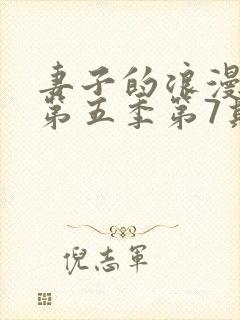 妻子的浪漫
第五季第7期
倪志军